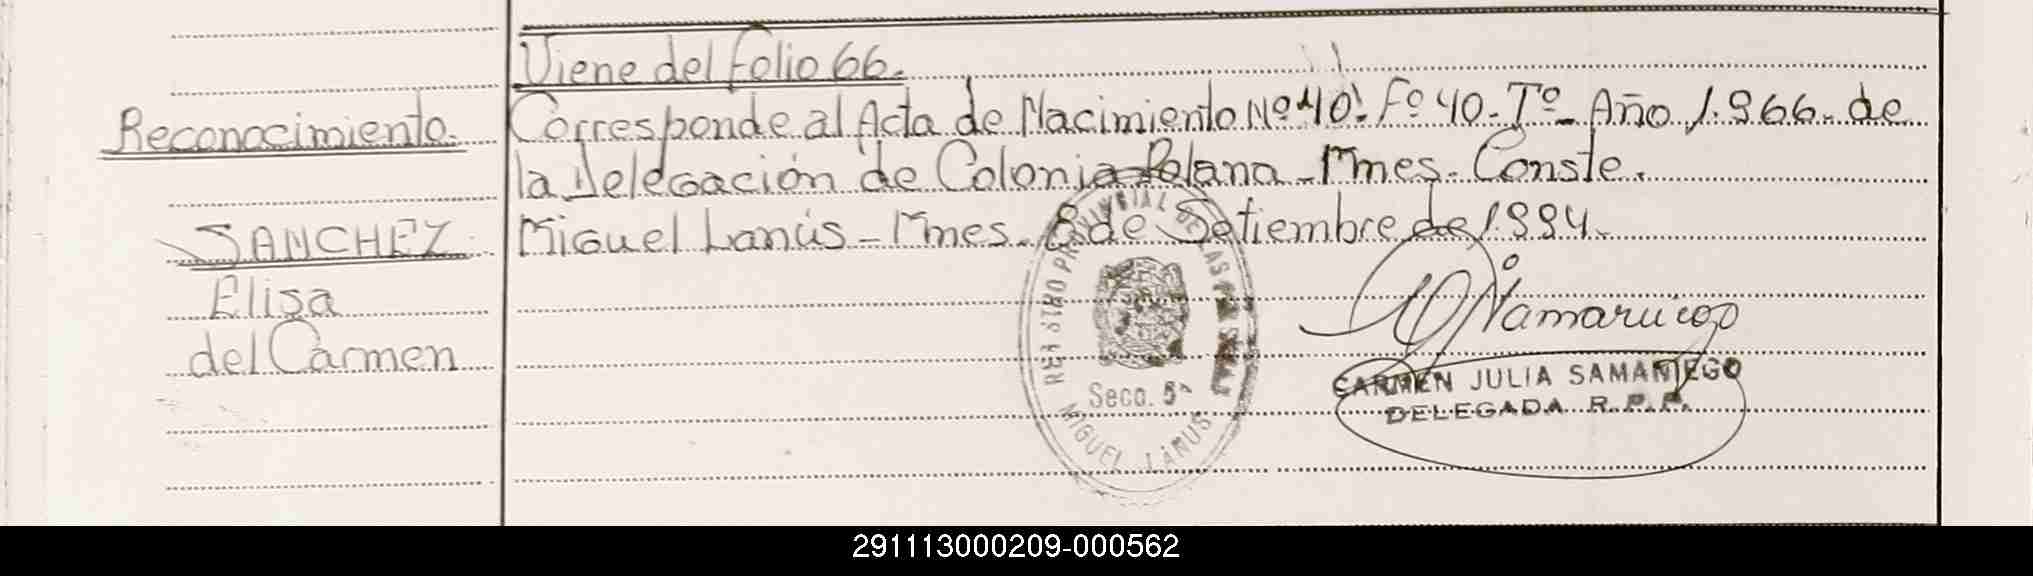 Viene del folio 66.
Reconocimiento.
Corresponde al Acta de Nacimiento Nº 40. Fº 40. Tº_ Año 1.966. de
la Delegación de Colonia Polana _ Mnes. Conste.
SANCHEZ
Miguel Lanús _ Mnes. 8 de Setiembre de 1994.
Elisa
del Carmen
REGISTRO PROVINCIAL DE LAS PERSONAS
Secc. 5ª
MIGUEL LANUS
CARMEN JULIA SAMANIEGO
DELEGADA R.P.P.
291113000209-000562